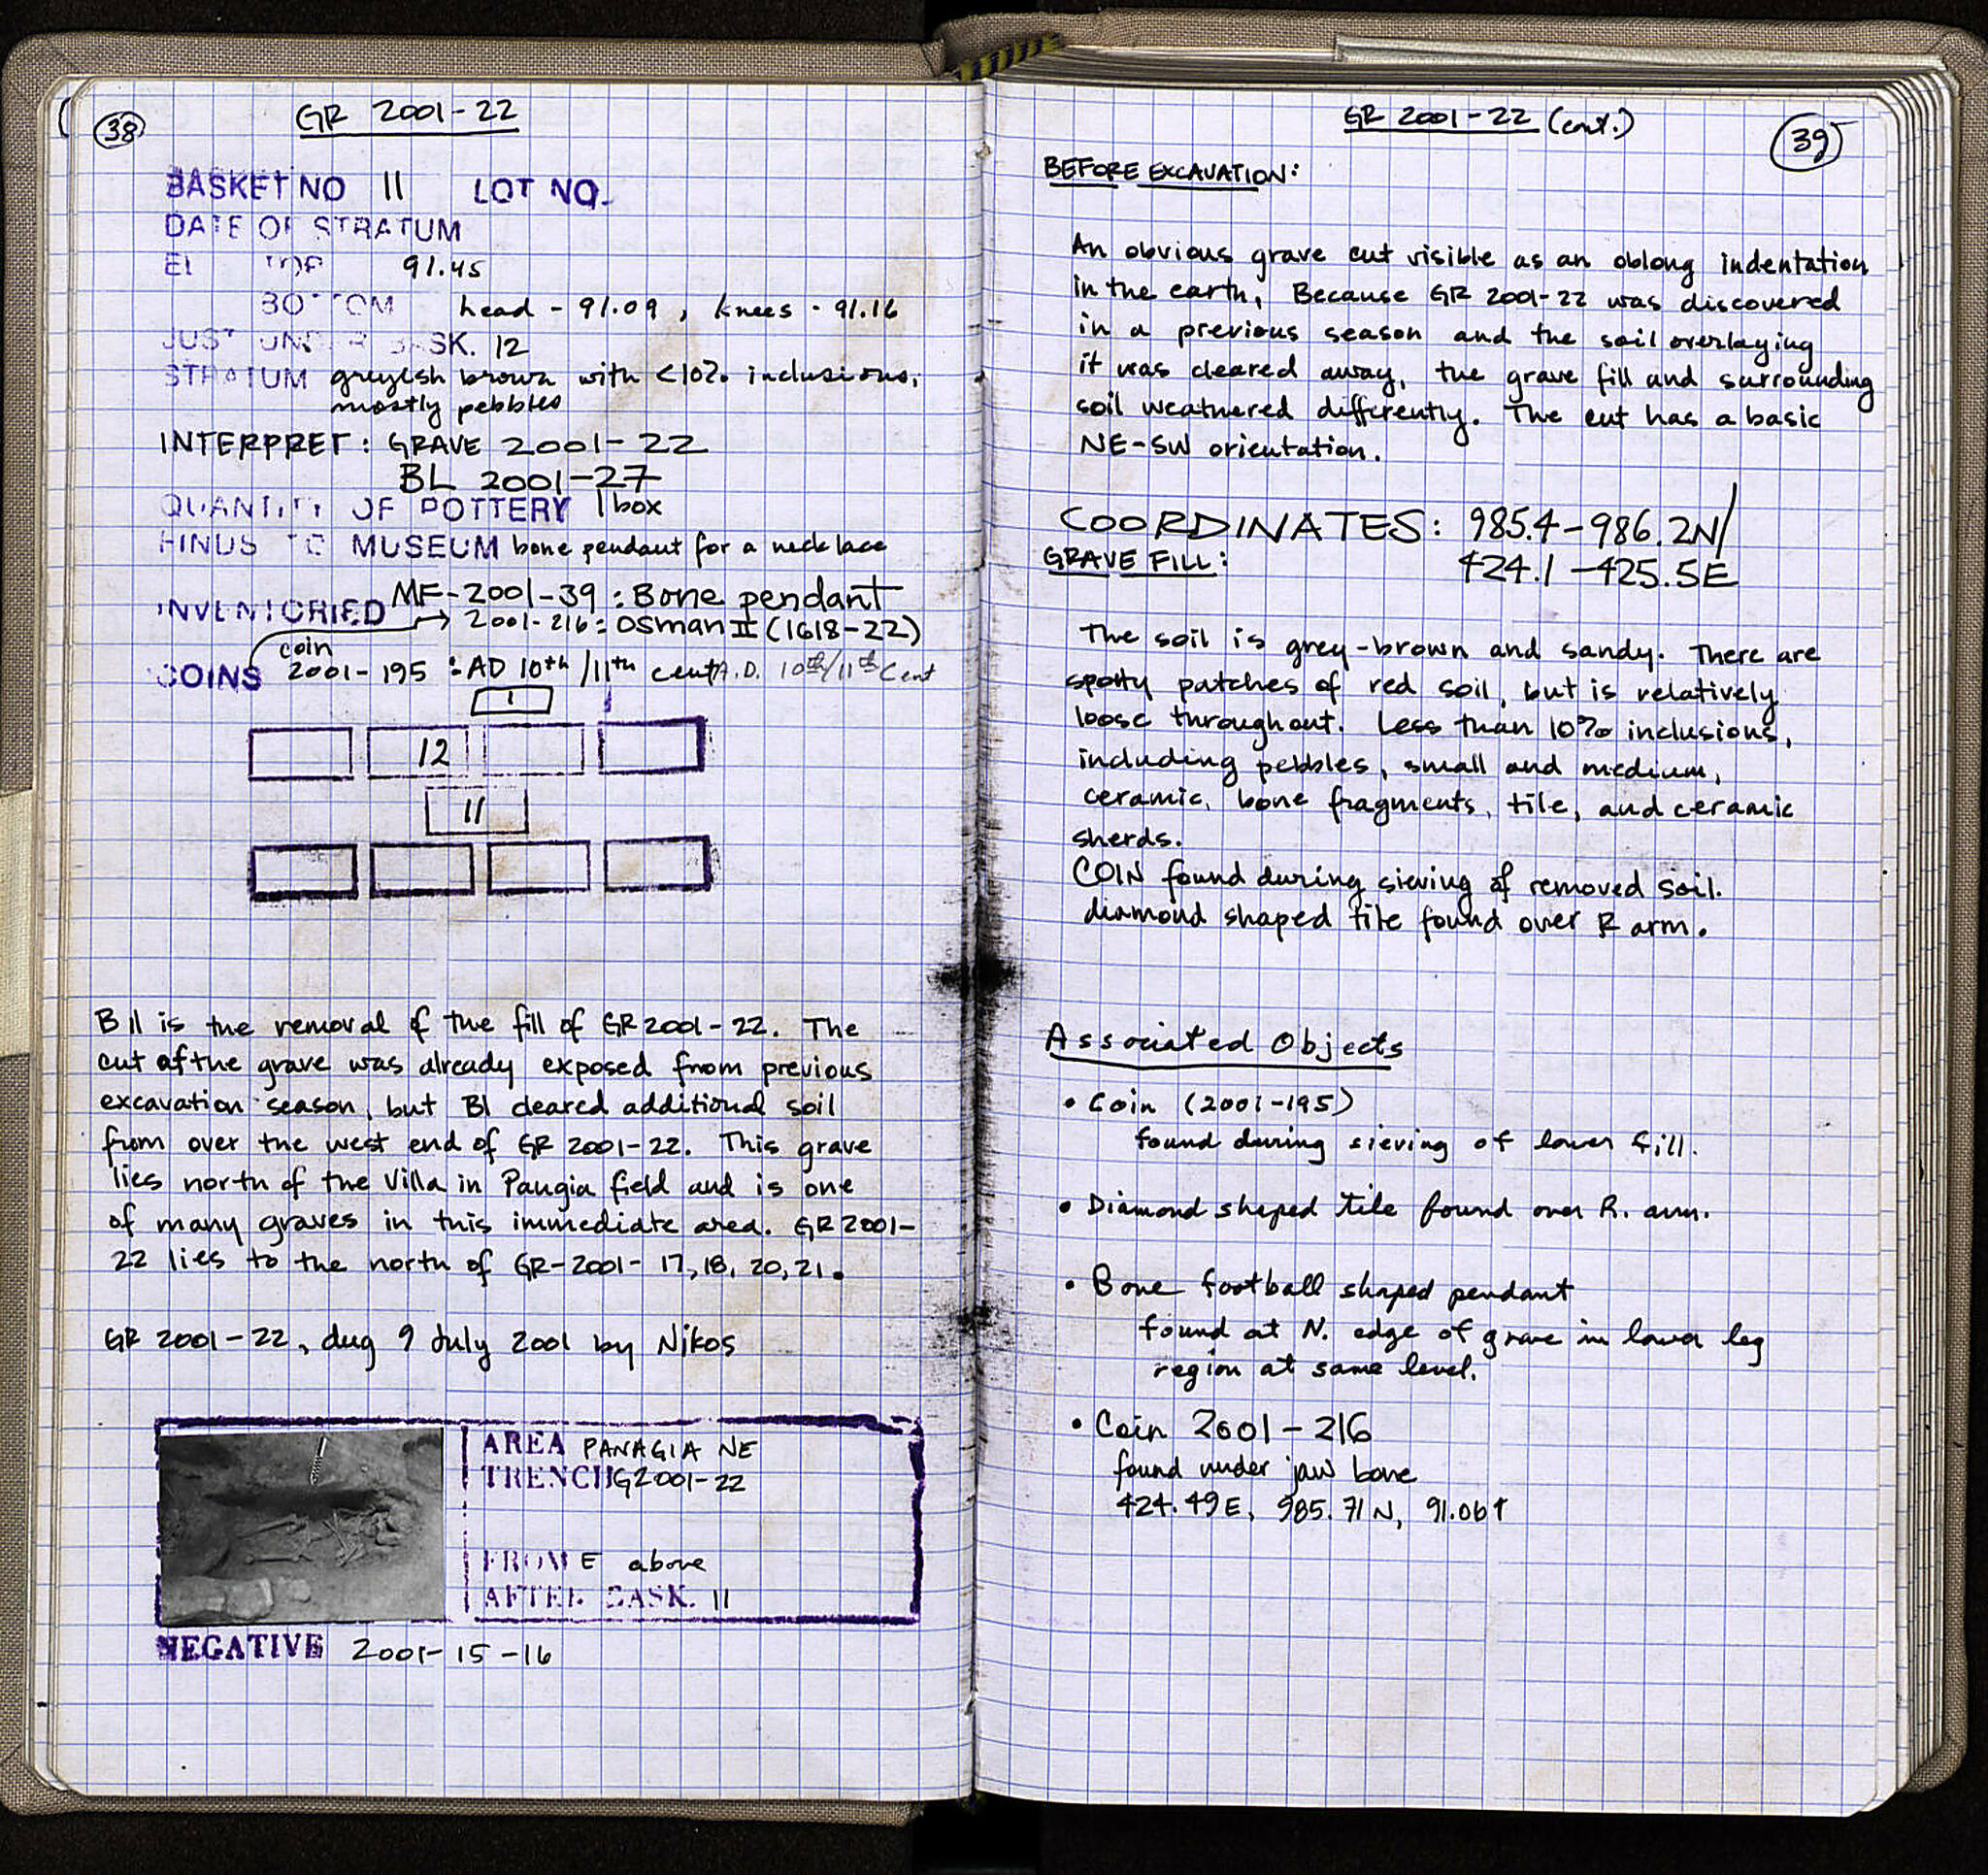 38
GR 2001-22
BASKET NO 11 LOT NO.
DATE OF STRATUM
EL TOP 91.45
BOTTOM head - 91.09, knees - 91.16
JUST UNDER BASK. 12
STRATUM greyish brown with <10% inclusions,
mostly pebbles
INTERPRET: GRAVE 2001-22
BL 2001-27
QUANTITY OF POTTERY 1 box
FINDS TO MUSEUM bone pendant for a necklace
MF-2001-39: Bone pendant
INVENTORIED → 2001-216: Osman II (1618-22)
coin
COINS 2001-195: AD 10th/11th cent A.D. 10th/11th Cent
1
12
11
B11 is the removal of the fill of GR 2001-22. The
cut of the grave was already exposed from previous
excavation season, but B1 cleared additional soil
from over the west end of GR 2001-22. This grave
lies north of the Villa in Pangia field and is one
of many graves in this immediate area. GR 2001-
22 lies to the north of GR-2001-17, 18, 20, 21.
GR 2001-22, dug 9 July 2001 by Nikos
AREA PANAGIA NE
TRENCH G2001-22
FROM E above
AFTER BASK. 11
NEGATIVE 2001-15-16
GR 2001-22 (cont.)
39
BEFORE EXCAVATION:
An obvious grave cut visible as an oblong indentation
in the earth, Because GR 2001-22 was discovered
in a previous season and the soil overlaying
it was cleared away, the grave fill and surrounding
soil weathered differently. The cut has a basic
NE-SW orientation.
COORDINATES: 985.4-986.2N/
GRAVE FILL: 424.1-425.5E
The soil is grey-brown and sandy. There are
spotty patches of red soil, but is relatively
loose throughout. Less than 10% inclusions,
including pebbles, small and medium,
ceramic, bone fragments, tile, and ceramic
sherds.
COIN found during sieving of removed soil.
diamond shaped tile found over R arm.
Associated Objects
• Coin (2001-195)
found during sieving of lower fill.
• Diamond shaped tile found over R. arm.
• Bone football shaped pendant
found at N. edge of grave in lower leg
region at same level.
• Coin 2001-216
found under jaw bone
424.49E, 985.71N, 91.06↑